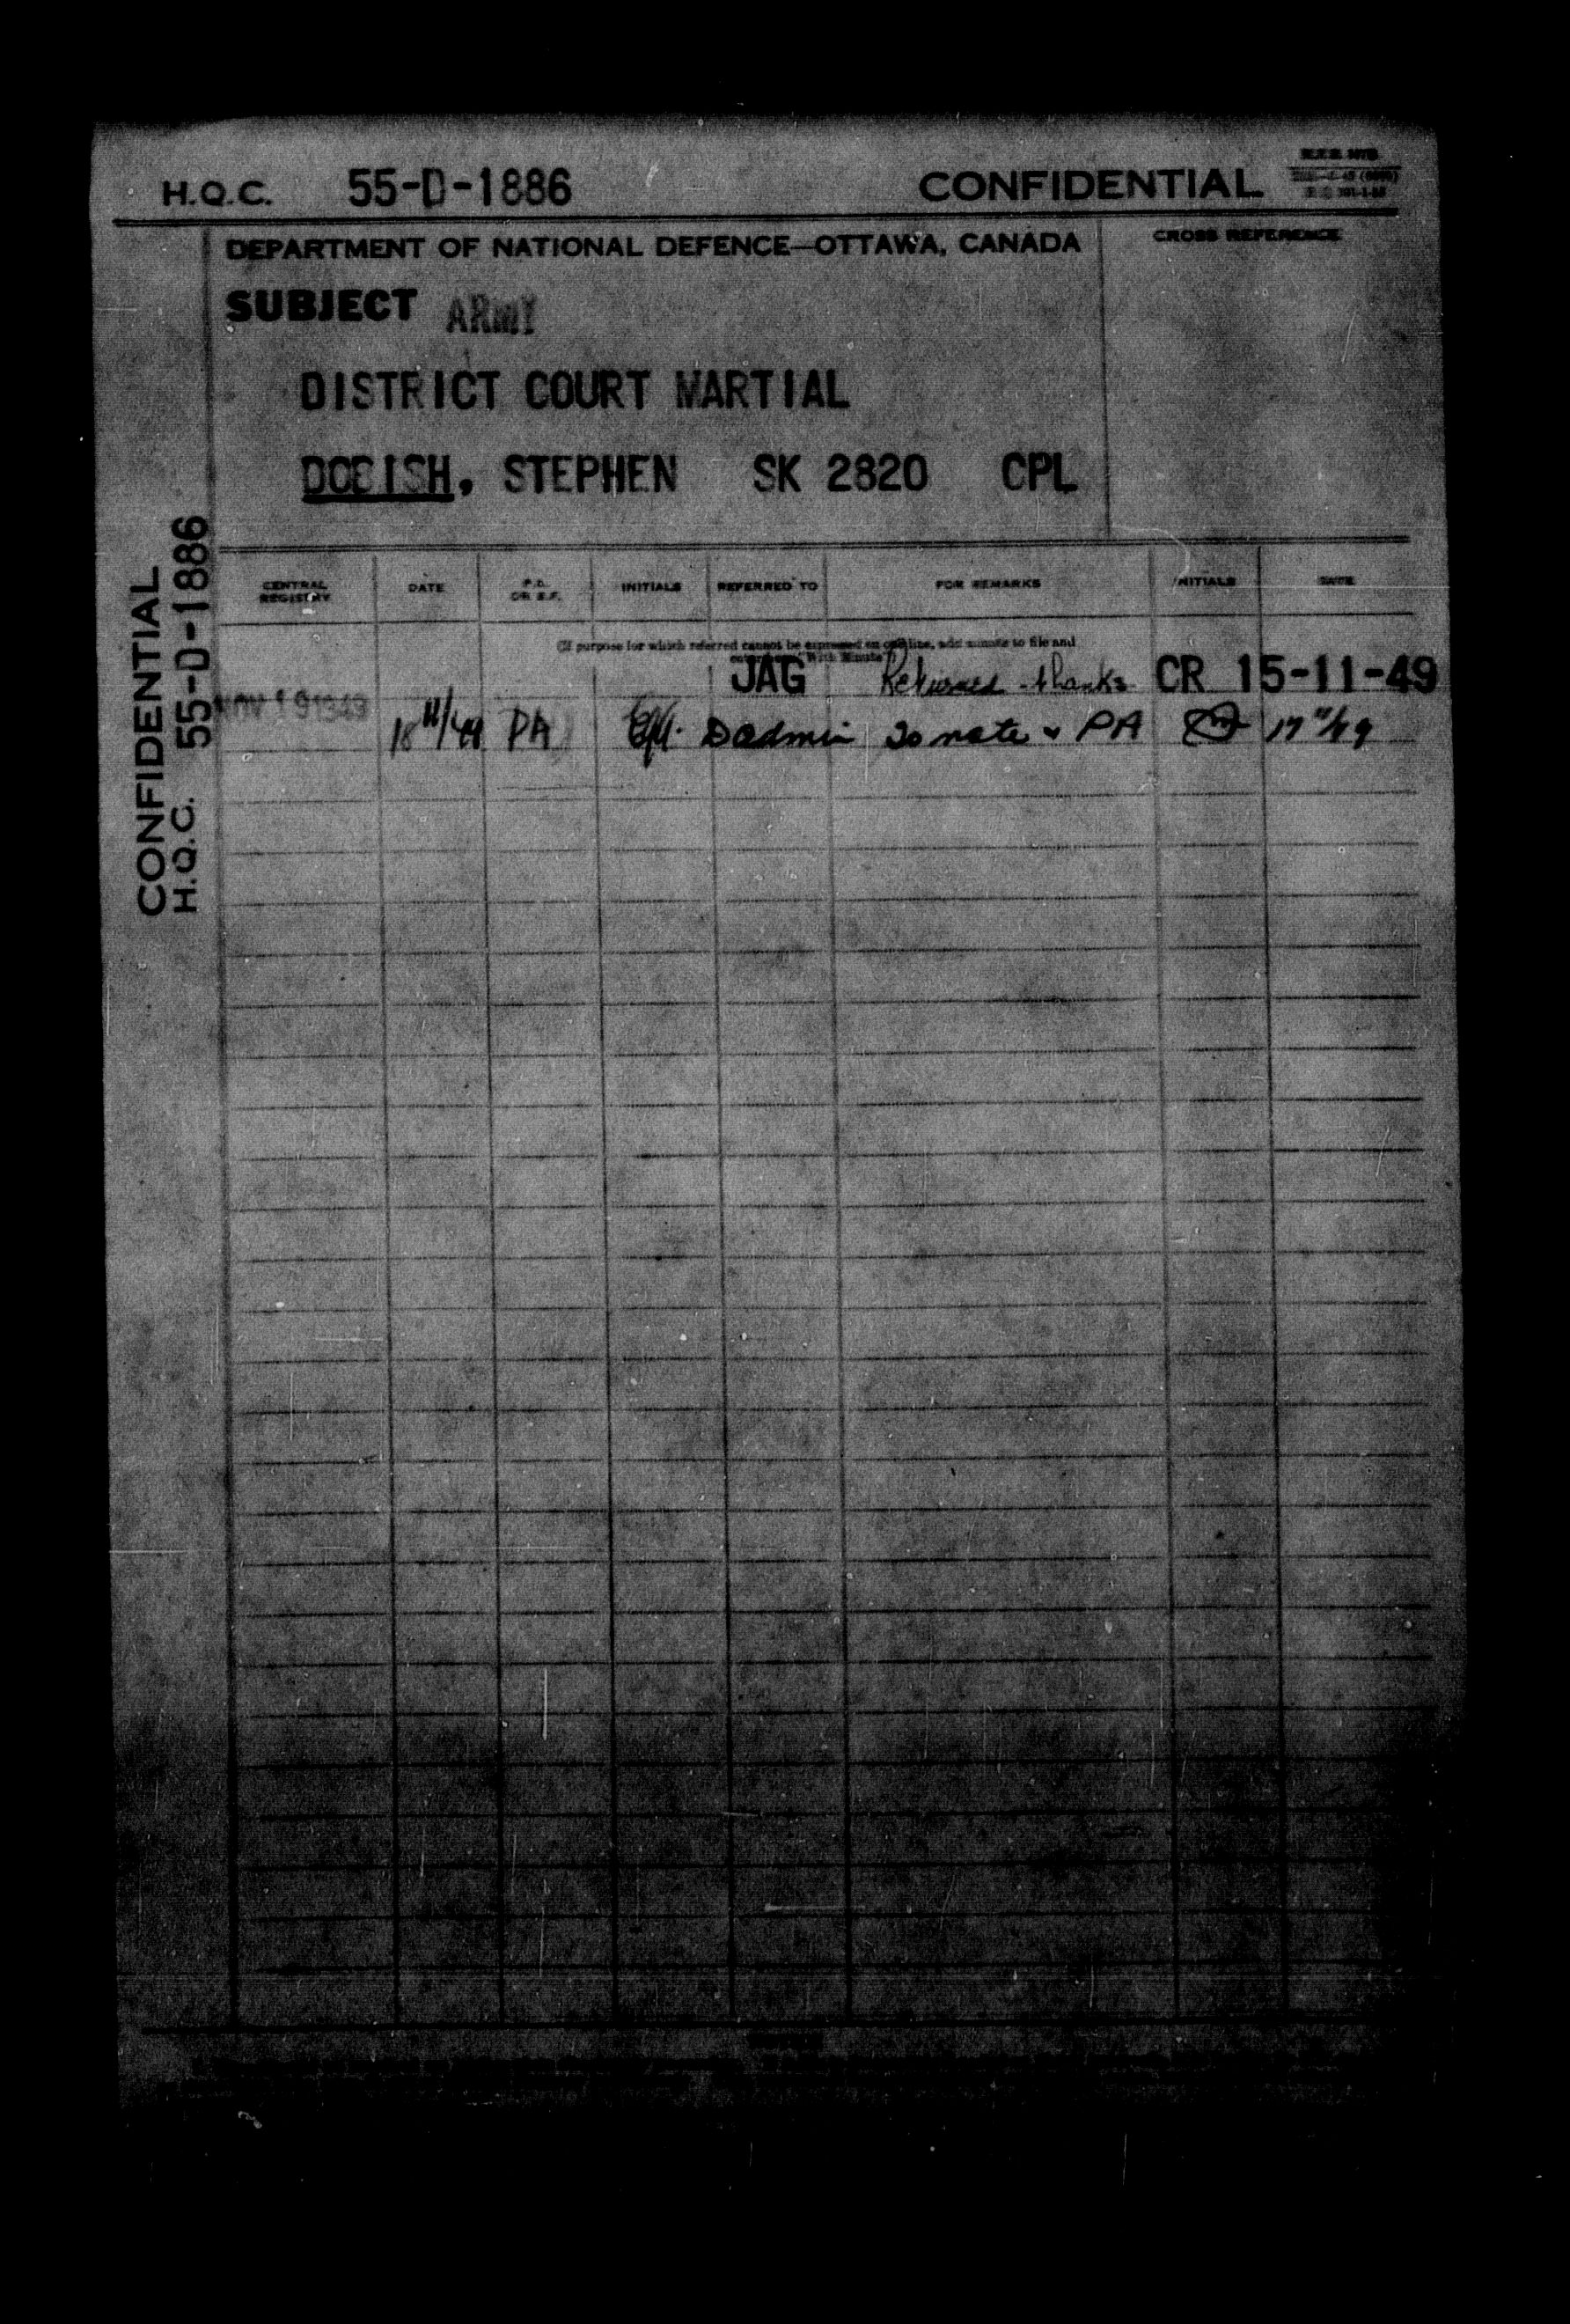 H.Q.C. 55-D-1886 CONFIDENTIAL
DEPARTMENT OF NATIONAL DEFENCE—OTTAWA, CANADA
CROSS REFERENCE
SUBJECT ARMY
DISTRICT COURT MARTIAL
DOEISH, STEPHEN SK 2820 CPL
CONFIDENTIAL
H.Q.C. 55-D-1886
CENTRAL REGISTRY DATE P.A. OR B.F. INITIALS REFERRED TO FOR REMARKS INITIALS DATE
(If purpose for which referred cannot be expressed on one line, add minute to file and
"With Minute")
JAG Returned thanks CR 15-11-49
NOV 19 1949 18 11/49 PA D admin To note & PA 17 11/49